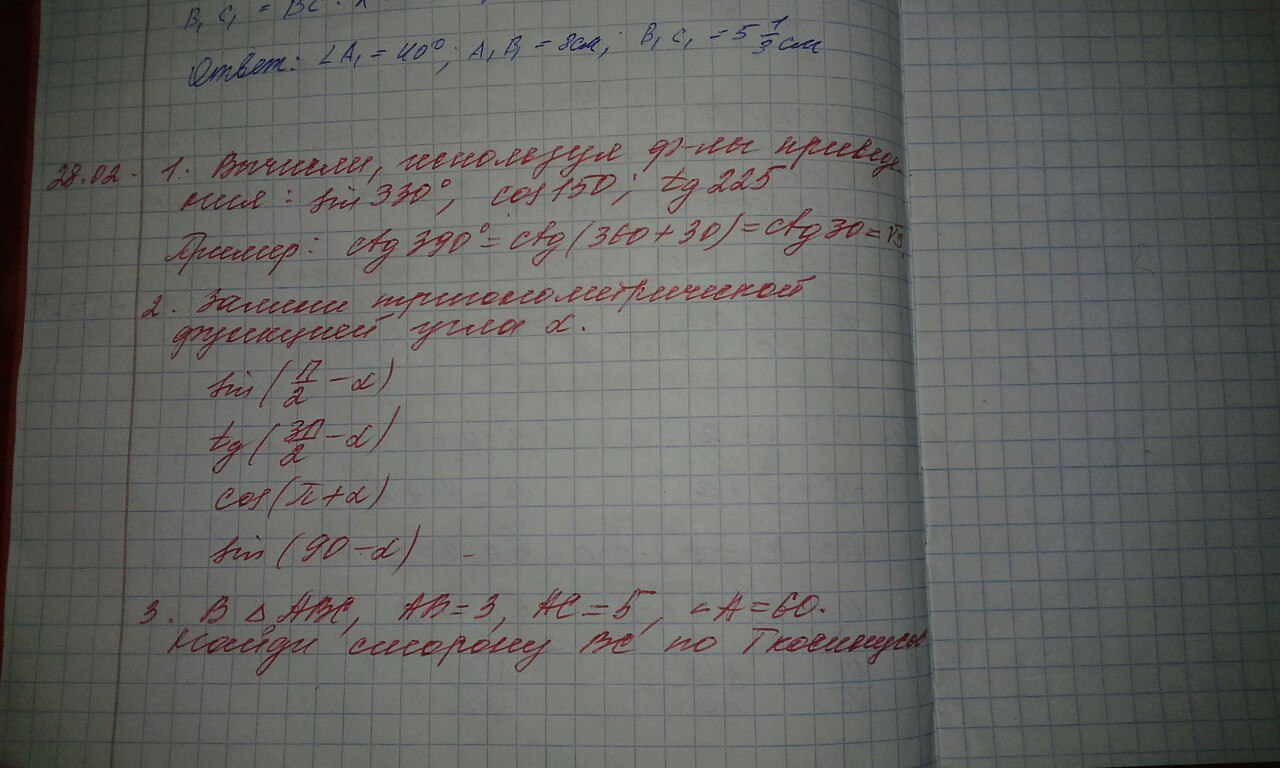 B₁ C₁ = BC ·
Ответ: ∠A₁ = 40°; A₁ B₁ = 8см; B₁ C₁ = 5 1/3 см
28.02. 1. Вычисли, используя ф-лы приведе
ния: sin 330°, cos 150; tg 225
Пример: ctg 390° = ctg (360 + 30) = ctg 30 = √3
2. Замени тригонометрической
функцией угла α.
sin (π/2 − α)
tg (3π/2 − α)
cos (π + α)
sin (90 − α) –
3. В △ ABC, AB = 3, AC = 5, ∠A = 60.
Найди сторону BC по Т косинусов